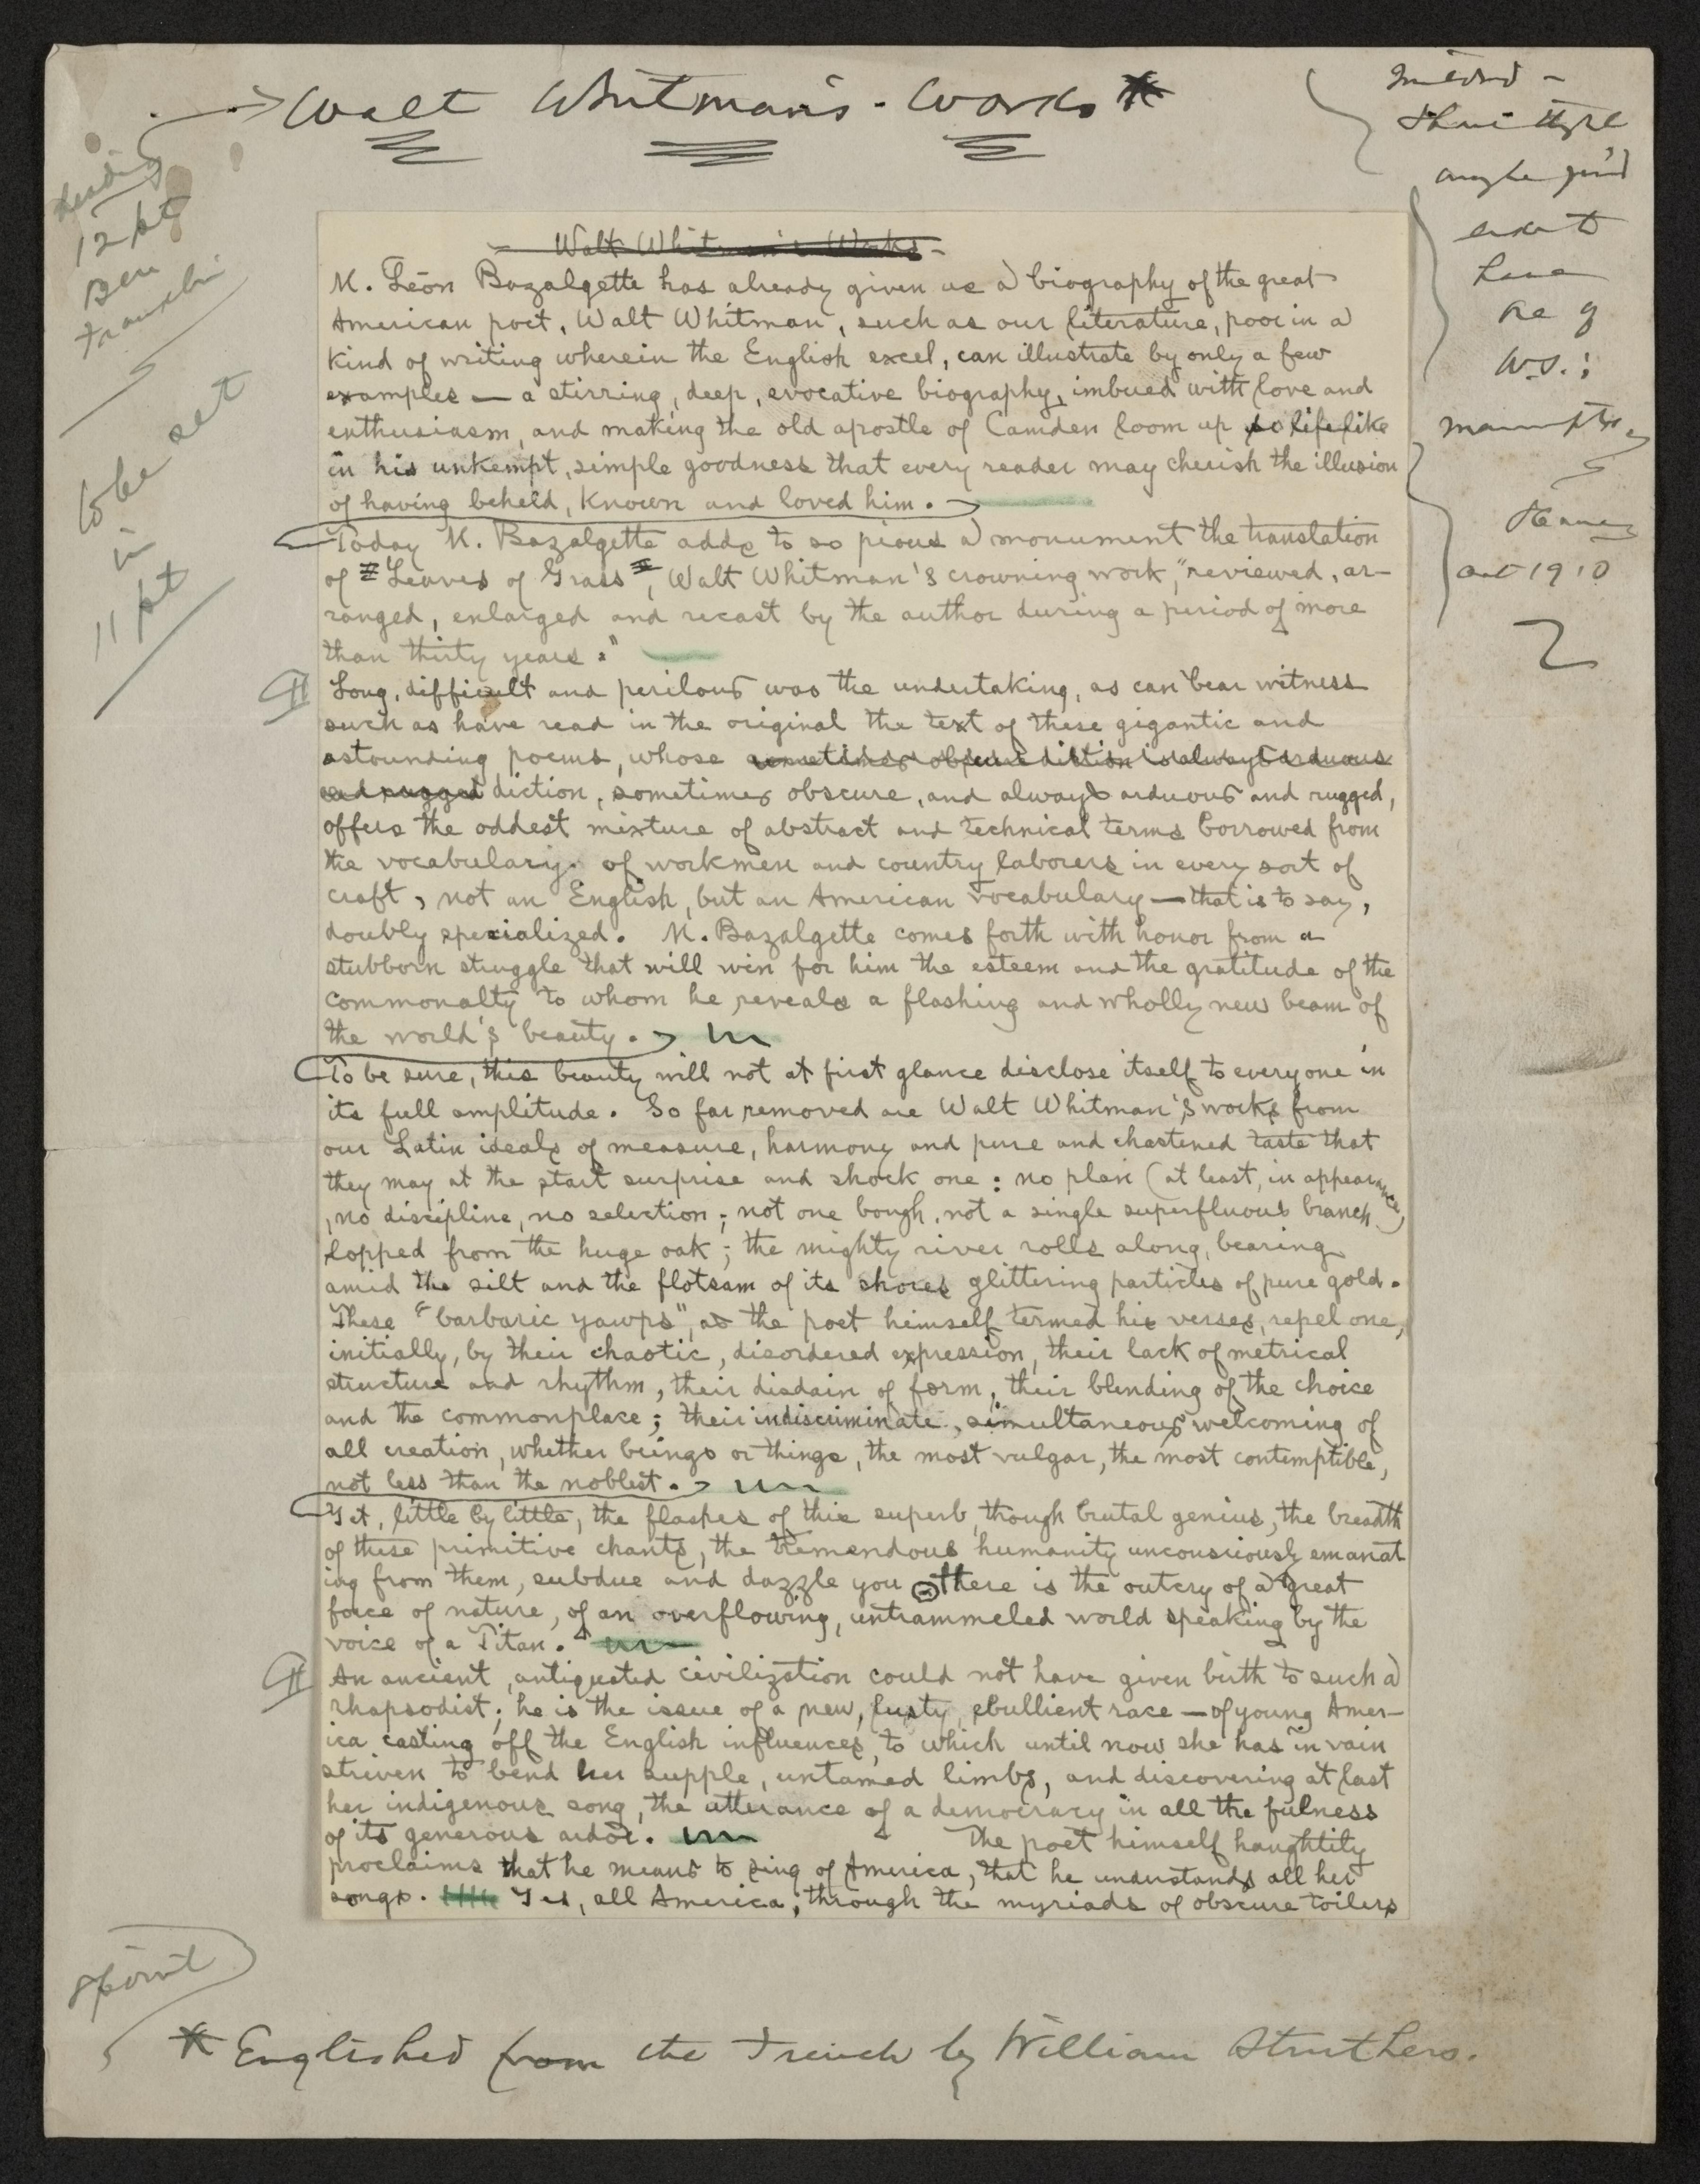 Walt Whitman's Works *
heading
12 pt
Ben
Franklin
to be set
in
11 pt
Mildred -
W.S.:
Oct 1910
Walt Whitman's Works -
M. Léon Bazalgette has already given us a biography of the great
American poet, Walt Whitman, such as our literature, poor in a
kind of writing wherein the English excel, can illustrate by only a few
examples — a stirring, deep, evocative biography, imbued with love and
enthusiasm, and making the old apostle of Camden loom up so lifelike
in his unkempt, simple goodness that every reader may cherish the illusion
of having beheld, known and loved him.
Today M. Bazalgette adds to so pious a monument the translation
of "Leaves of Grass", Walt Whitman's crowning work, "reviewed, ar-
ranged, enlarged and recast by the author during a period of more
than thirty years."
¶ Long, difficult and perilous was the undertaking, as can bear witness
such as have read in the original the text of these gigantic and
astounding poems, whose sometimes obscure diction is always arduous
and rugged diction, sometimes obscure, and always arduous and rugged,
offers the oddest mixture of abstract and technical terms borrowed from
the vocabulary of workmen and country laborers in every sort of
craft, not an English, but an American vocabulary — that is to say,
doubly specialized. M. Bazalgette comes forth with honor from a
stubborn struggle that will win for him the esteem and the gratitude of the
commonalty to whom he reveals a flashing and wholly new beam of
the world's beauty.
To be sure, this beauty will not at first glance disclose itself to everyone in
its full amplitude. So far removed are Walt Whitman's works from
our Latin ideals of measure, harmony and pure and chastened taste that
they may at the start surprise and shock one: no plan (at least, in appearance)
, no discipline, no selection; not one bough, not a single superfluous branch
lopped from the huge oak; the mighty river rolls along, bearing
amid the silt and the flotsam of its shores glittering particles of pure gold.
These "barbaric yawps", as the poet himself termed his verses, repel one,
initially, by their chaotic, disordered expression, their lack of metrical
structure and rhythm, their disdain of form, their blending of the choice
and the commonplace; their indiscriminate, simultaneous welcoming of
all creation, whether beings or things, the most vulgar, the most contemptible,
not less than the noblest.
Yet, little by little, the flashes of this superb, though brutal genius, the breadth
of these primitive chants, the tremendous humanity unconsciously emanat
ing from them, subdue and dazzle you: there is the outcry of a great
force of nature, of an overflowing, untrammeled world speaking by the
voice of a Titan.
¶ An ancient, antiquated civilization could not have given birth to such a
rhapsodist; he is the issue of a new, lusty, ebullient race — of young Amer-
ica casting off the English influences, to which until now she has in vain
striven to bend her supple, untamed limbs, and discovering at last
her indigenous song, the utterance of a democracy in all the fulness
of its generous ardor. The poet himself haughtily
proclaims that he means to sing of America, that he understands all her
songs. Yes, all America, through the myriads of obscure toilers
8 point
* Englished from the French by William Struthers.